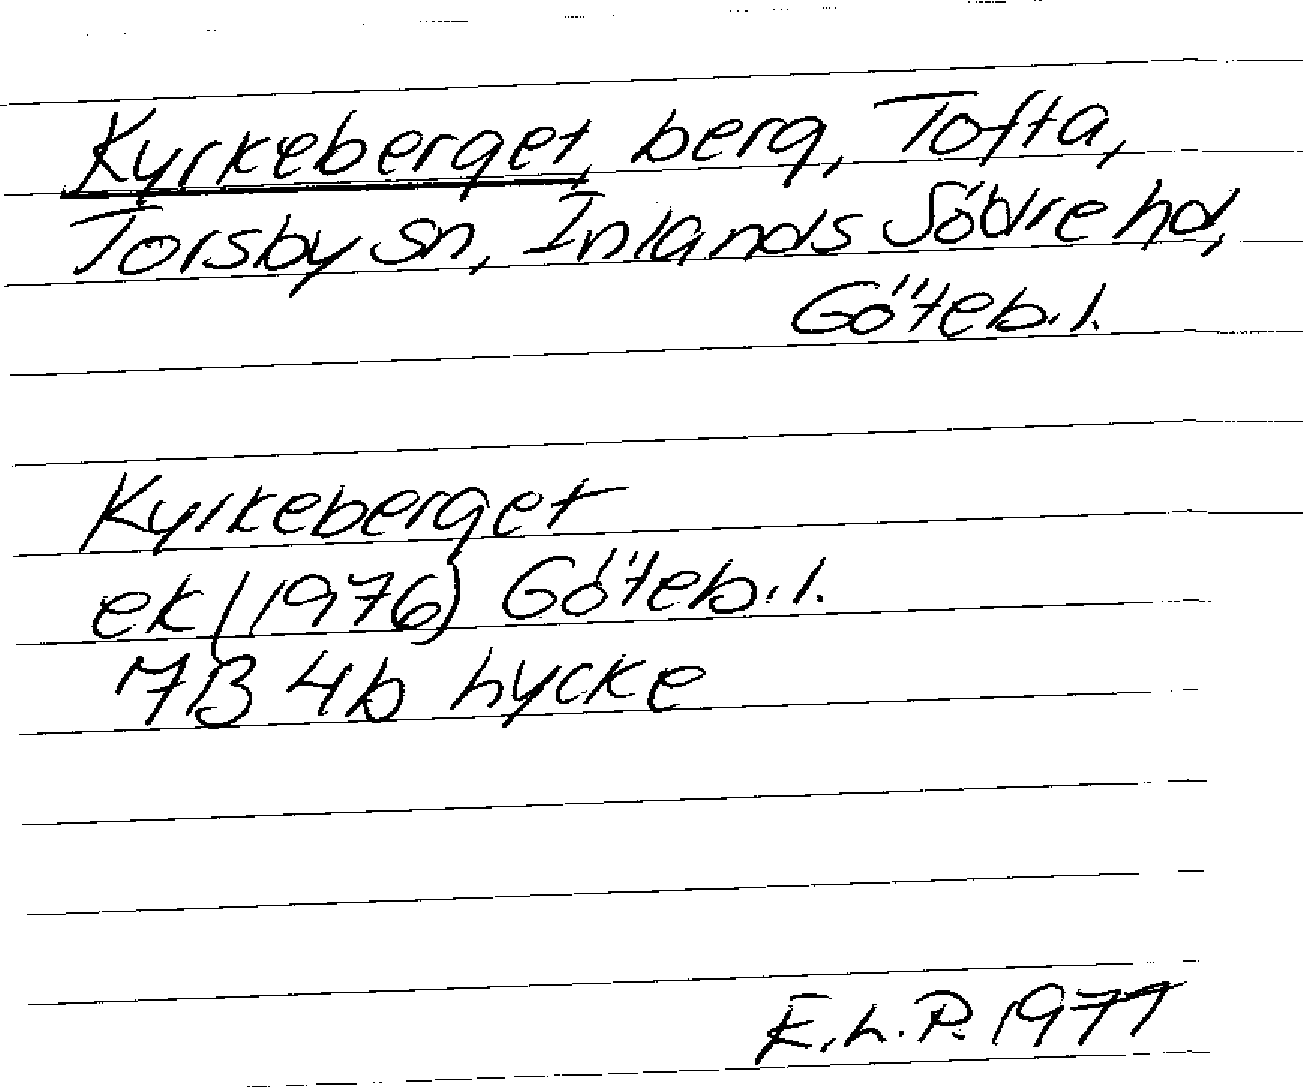 Kyrkeberget, berg, Tofta,
Torsby sn, Inlands Södre hd,
Göteb. l.
Kyrkeberget
ek (1976) Göteb. l.
7B 4b Lycke
E. L. P. 1977